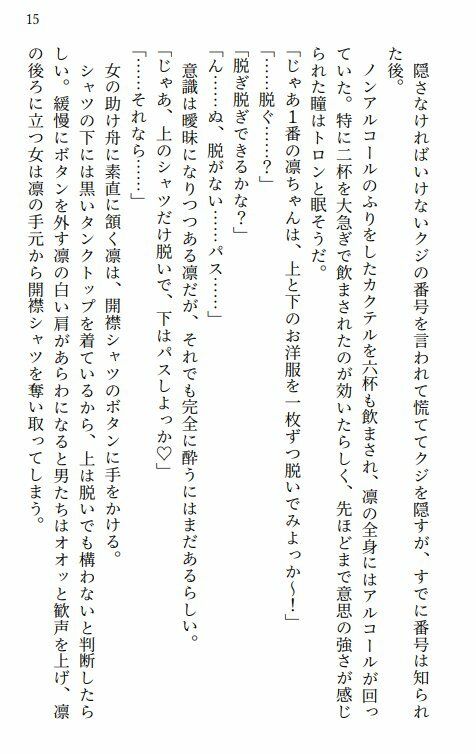 15
隠さなければいけないクジの番号を言われて慌ててクジを隠すが、すでに番号は知られ
た後。
ノンアルコールのふりをしたカクテルを六杯も飲まされ、凛の全身にはアルコールが回っ
ていた。特に二杯を大急ぎで飲まされたのが効いたらしく、先ほどまで意思の強さが感じ
られた瞳はトロンと眠そうだ。
「じゃあ1番の凛ちゃんは、上と下のお洋服を一枚ずつ脱いでみよっか〜!」
「……脱ぐ……?」
「脱ぎ脱ぎできるかな?」
「ん……ぬ、脱がない……パス……」
意識は曖昧になりつつある凛だが、それでも完全に酔うにはまだあるらしい。
「じゃあ、上のシャツだけ脱いで、下はパスしよっか♡」
「……それなら……」
女の助け舟に素直に頷く凛は、開襟シャツのボタンに手をかける。
シャツの下には黒いタンクトップを着ているから、上は脱いでも構わないと判断したら
しい。緩慢にボタンを外す凛の白い肩があらわになると男たちはオオッと歓声を上げ、凛
の後ろに立つ女は凛の手元から開襟シャツを奪い取ってしまう。